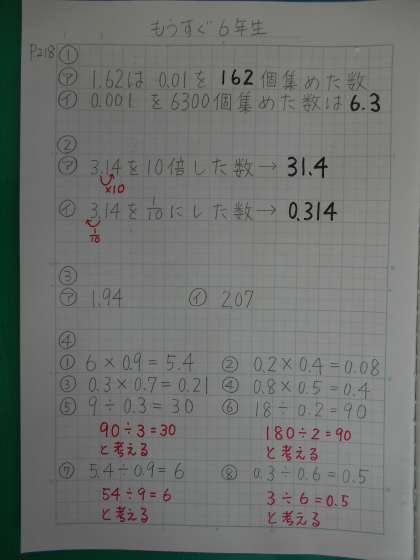 もうすぐ6年生
P218 ①
㋐ 1.62は 0.01を 162 個集めた数
㋑ 0.001 を 6300個集めた数は 6.3
②
㋐ 3.14を10倍した数→ 31.4
×10
㋑ 3.14を 1/10 にした数→ 0.314
1/10
③
㋐ 1.94 ㋑ 2.07
④
① 6×0.9=5.4 ② 0.2×0.4=0.08
③ 0.3×0.7=0.21 ④ 0.8×0.5=0.4
⑤ 9÷0.3=30 ⑥ 18÷0.2=90
90÷3=30 180÷2=90
と考える と考える
⑦ 5.4÷0.9=6 ⑧ 0.3÷0.6=0.5
54÷9=6 3÷6=0.5
と考える と考える